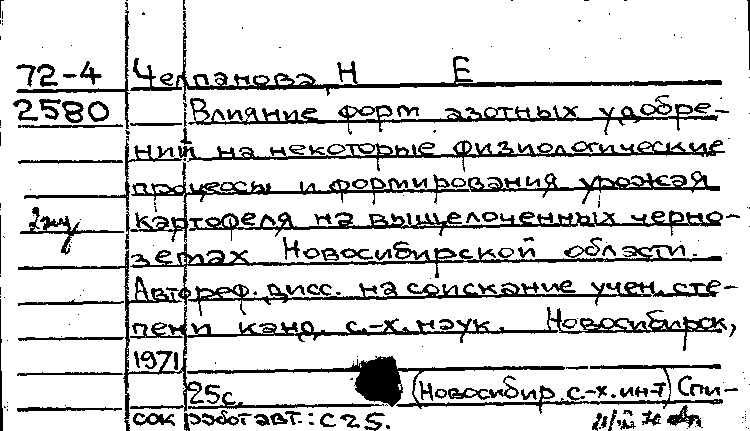 72-4 Челпанова, Н Е
2580 Влияние форм азотных удобре-
ний на некоторые физиологические
процессы и формирования урожая
2 экз картофеля на выщелоченных черно-
земах Новосибирской области.
Автореф. дисс. на соискание учен. сте-
пени канд. с.-х. наук. Новосибирск,
1971
25с. (Новосибир. с.-х. ин-т) Спи-
сок работ авт.: с 25.